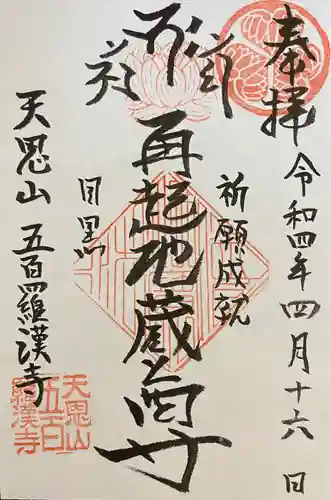 奉拝
令和四年四月十六日
祈願成就
再起地蔵尊
目黒
天恩山 五百羅漢寺
天恩山
五百
羅漢寺